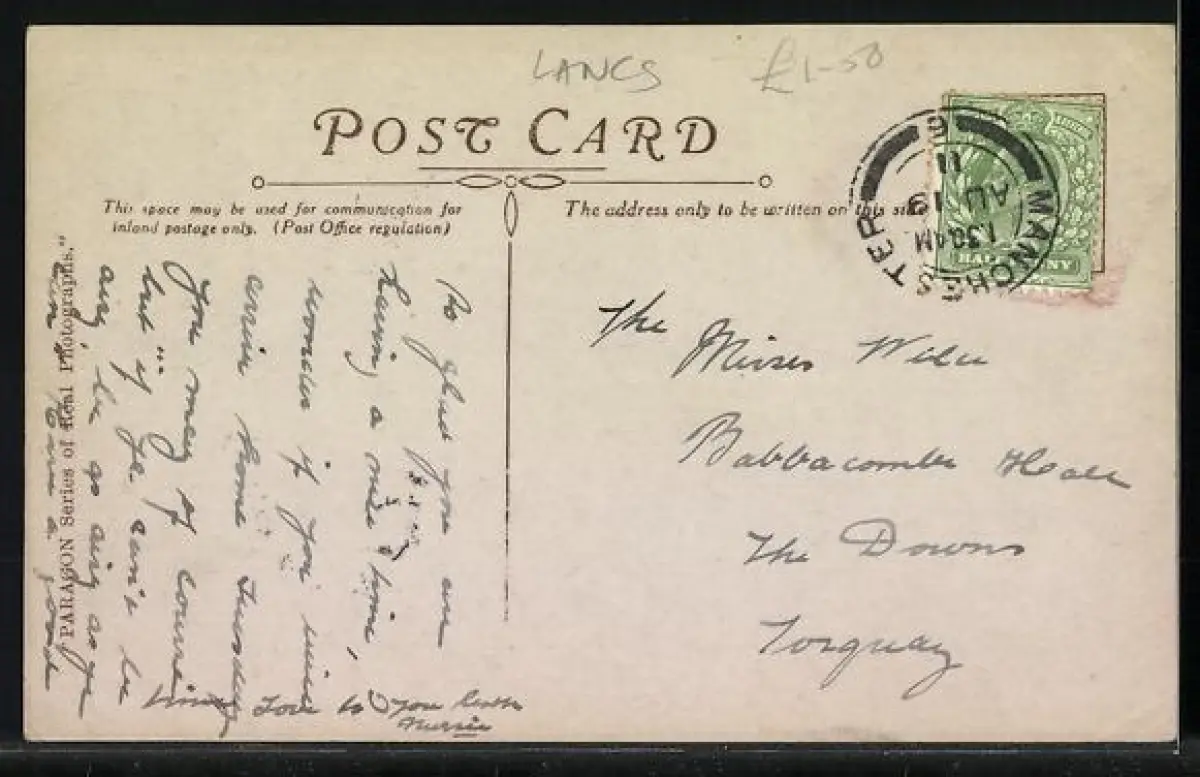 LANCS £1-50
POST CARD
This space may be used for communication for
inland postage only. (Post Office regulation)
The address only to be written on this side
MANCHESTER
1.30AM
AU 19
11
HALFPENNY
So glad you are
having a nice time,
wonder if you will
arrive home Tuesday
You may of course
but if ye can't be
airy be as airy as ye
can, a good
time Love to you both
Nursie
"PARAGON Series of Real Photographs."
The
Misses
Babbacombe Hall
The Downs
Torquay